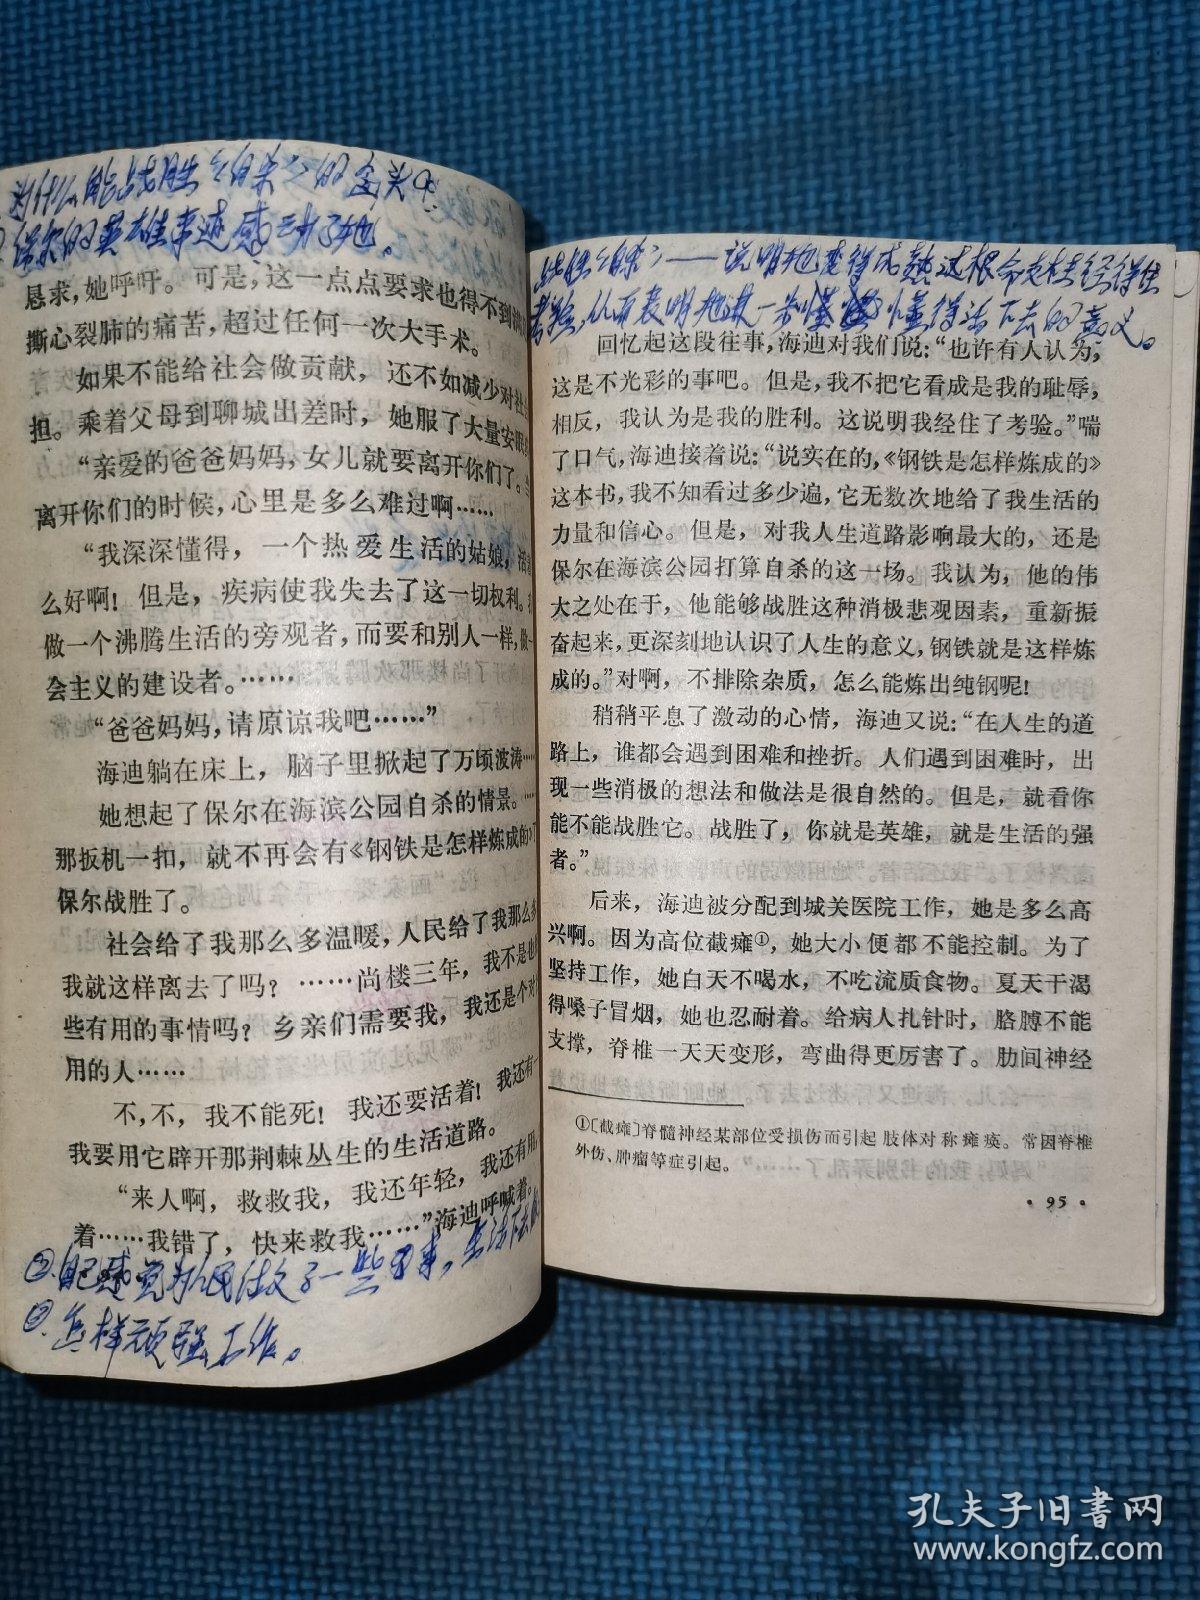 为什么能战胜《自杀》的念头?
保尔的英雄事迹感动了她。
恳求,她呼吁。可是,这一点点要求也得不到
撕心裂肺的痛苦,超过任何一次大手术。
如果不能给社会做贡献,还不如减少对社
担。乘着父母到聊城出差时,她服了大量安眠
“亲爱的爸爸妈妈,女儿就要离开你们了。
离开你们的时候,心里是多么难过啊……
“我深深懂得,一个热爱生活的姑娘,活
么好啊!但是,疾病使我失去了这一切权利。
做一个沸腾生活的旁观者,而要和别人一样,做一
会主义的建设者。……
“爸爸妈妈,请原谅我吧……”
海迪躺在床上,脑子里掀起了万顷波涛……
她想起了保尔在海滨公园自杀的情景。……
那扳机一扣,就不再会有《钢铁是怎样炼成的》了
保尔战胜了。
社会给了我那么多温暖,人民给了我那么多
我就这样离去了吗?……尚楼三年,我不是也
些有用的事情吗?乡亲们需要我,我还是个对
用的人……
不,不,我不能死!我还要活着!我还有一
我要用它辟开那荆棘丛生的生活道路。
“来人啊,救救我,我还年轻,我还有用,
着……我错了,快来救我……”海迪呼喊着。
②自己感觉为人民仕文了一些事,生活下去
③怎样顽强工作。
战胜《自杀》——说明她变得成熟
考验,从而表明她进一步懂得活下去的意义。
回忆起这段往事,海迪对我们说:“也许有人认为,
这是不光彩的事吧。但是,我不把它看成是我的耻辱,
相反,我认为是我的胜利。这说明我经住了考验。”喘
了口气,海迪接着说:“说实在的,《钢铁是怎样炼成的》
这本书,我不知看过多少遍,它无数次地给了我生活的
力量和信心。但是,对我人生道路影响最大的,还是
保尔在海滨公园打算自杀的这一场。我认为,他的伟
大之处在于,他能够战胜这种消极悲观因素,重新振
奋起来,更深刻地认识了人生的意义,钢铁就是这样炼
成的。”对啊,不排除杂质,怎么能炼出纯钢呢!
稍稍平息了激动的心情,海迪又说:“在人生的道
路上,谁都会遇到困难和挫折。人们遇到困难时,出
现一些消极的想法和做法是很自然的。但是,就看你
能不能战胜它。战胜了,你就是英雄,就是生活的强
者。”
后来,海迪被分配到城关医院工作,她是多么高
兴啊。因为高位截瘫①,她大小便都不能控制。为了
坚持工作,她白天不喝水,不吃流质食物。夏天干渴
得嗓子冒烟,她也忍耐着。给病人扎针时,胳膊不能
支撑,脊椎一天天变形,弯曲得更厉害了。肋间神经
①〔截瘫〕脊髓神经某部位受损伤而引起肢体对称瘫痪。常因脊椎
外伤、肿瘤等症引起。
·95·
孔夫子旧书网
www.kongfz.com